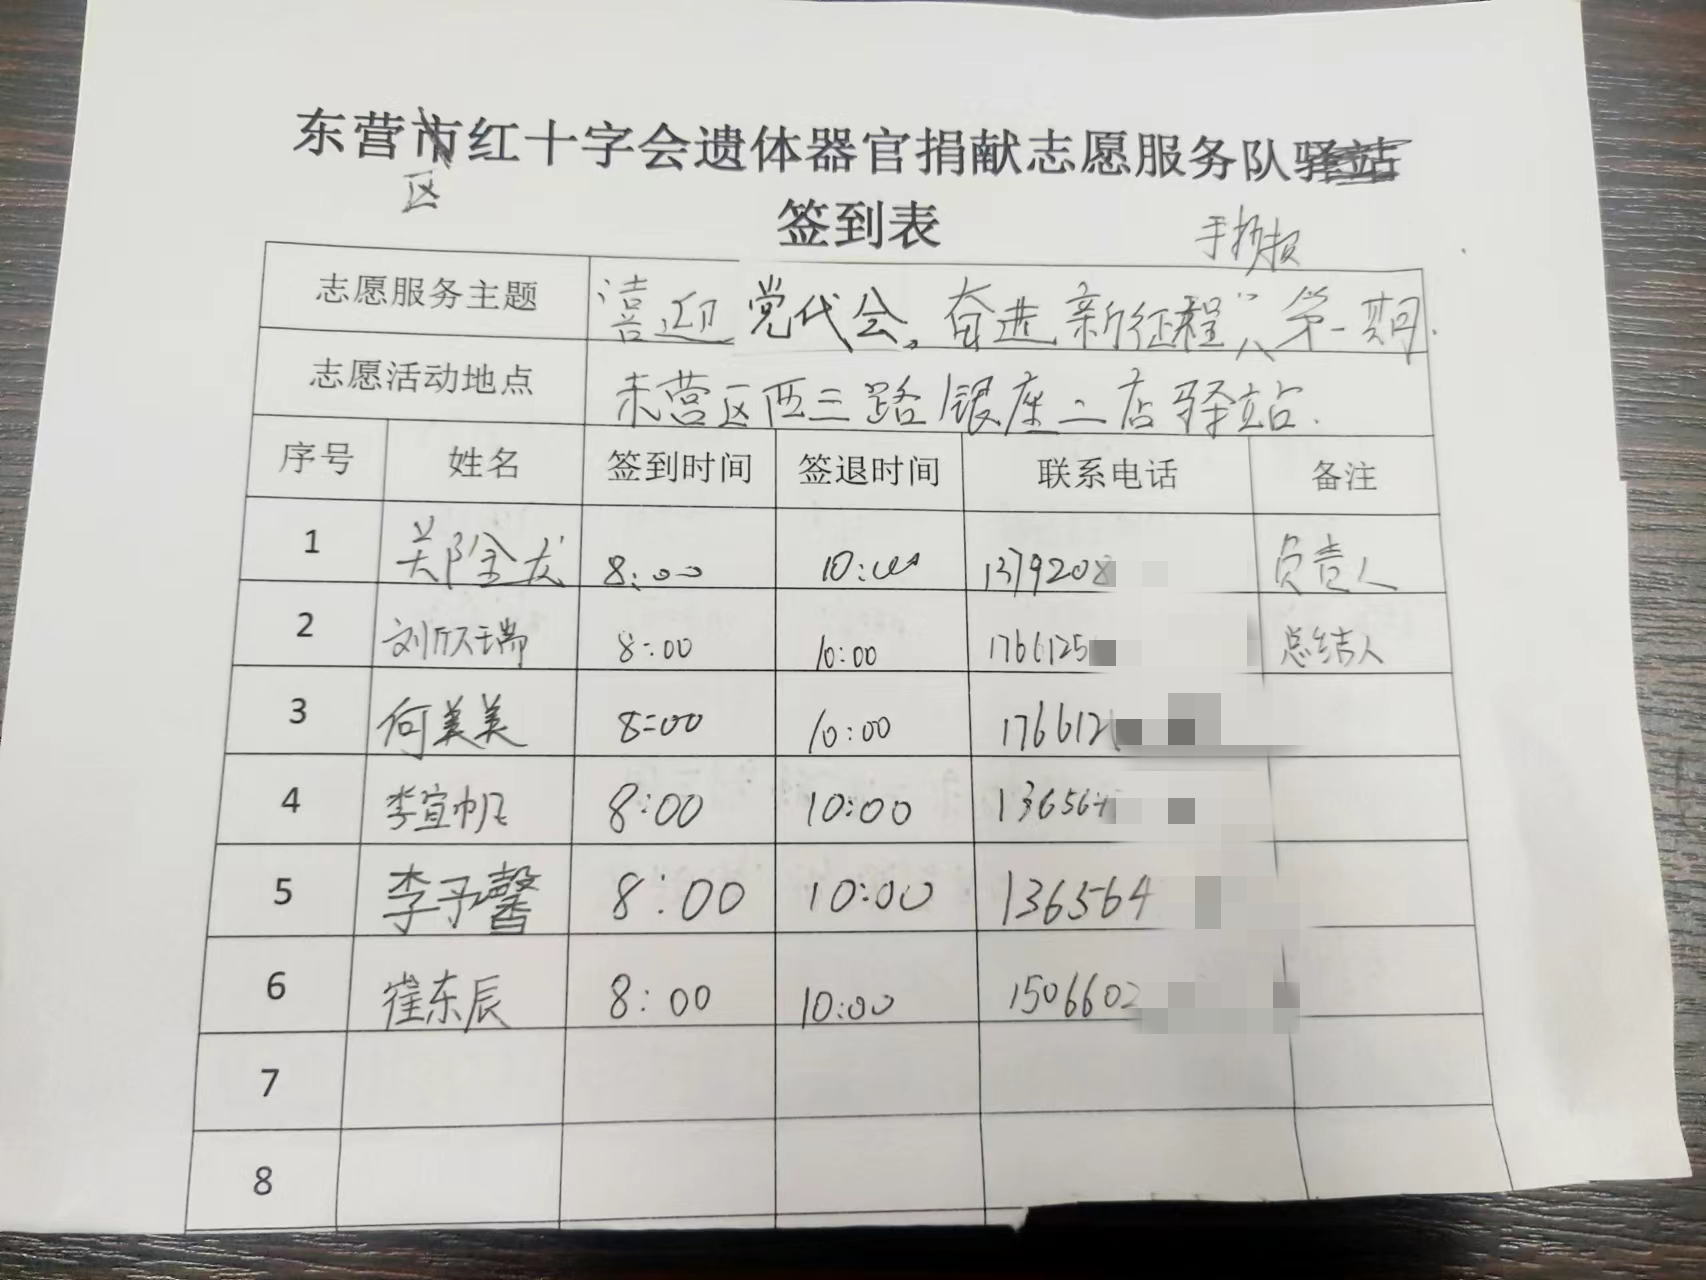 东营市红十字会遗体器官捐献志愿服务队驿站
区
签到表
志愿服务主题 喜迎党代会,奋进新征程"八第一期.
志愿活动地点 东营区西三路银座二店驿站.
序号 姓名 签到时间 签退时间 联系电话 备注
1 8:00 10:00 1379208 负责人
2 刘欣瑞 8:00 10:00 1766125 总结人
3 何美美 8:00 10:00 176612
4 李宣帆 8:00 10:00 136564
5 李予馨 8:00 10:00 136564
6 崔东辰 8:00 10:00 1506602
7
8